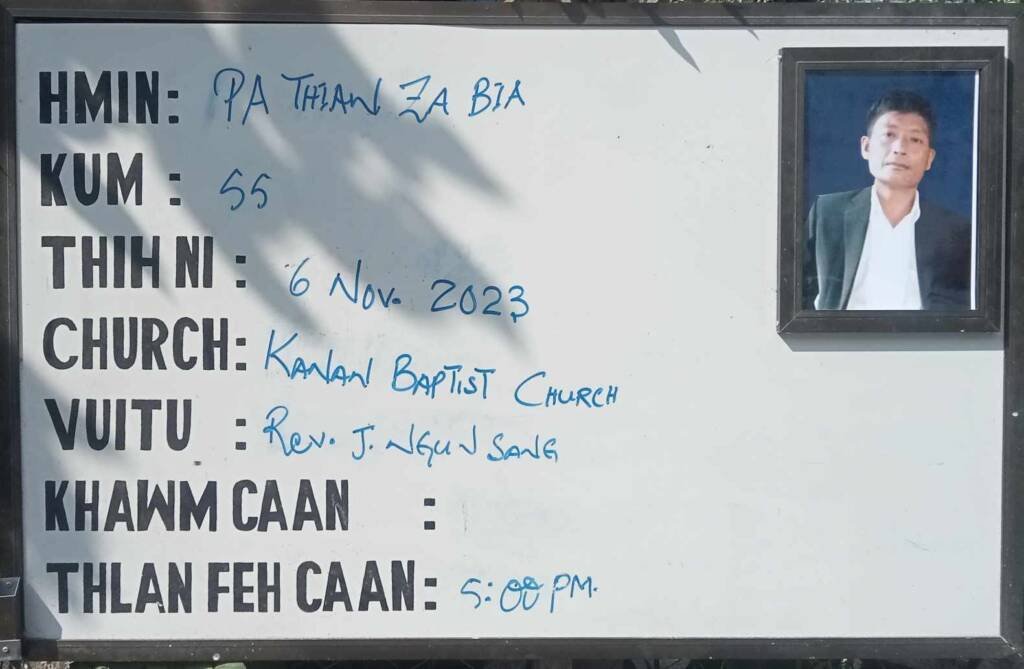 HMIN: PA THIAN ZA BIA
KUM : 55
THIH NI : 6 Nov. 2023
CHURCH: KANAN BAPTIST CHURCH
VUITU : Rev. J. NGUN SANG
KHAWM CAAN :
THLAN FEH CAAN: 5:00 PM.